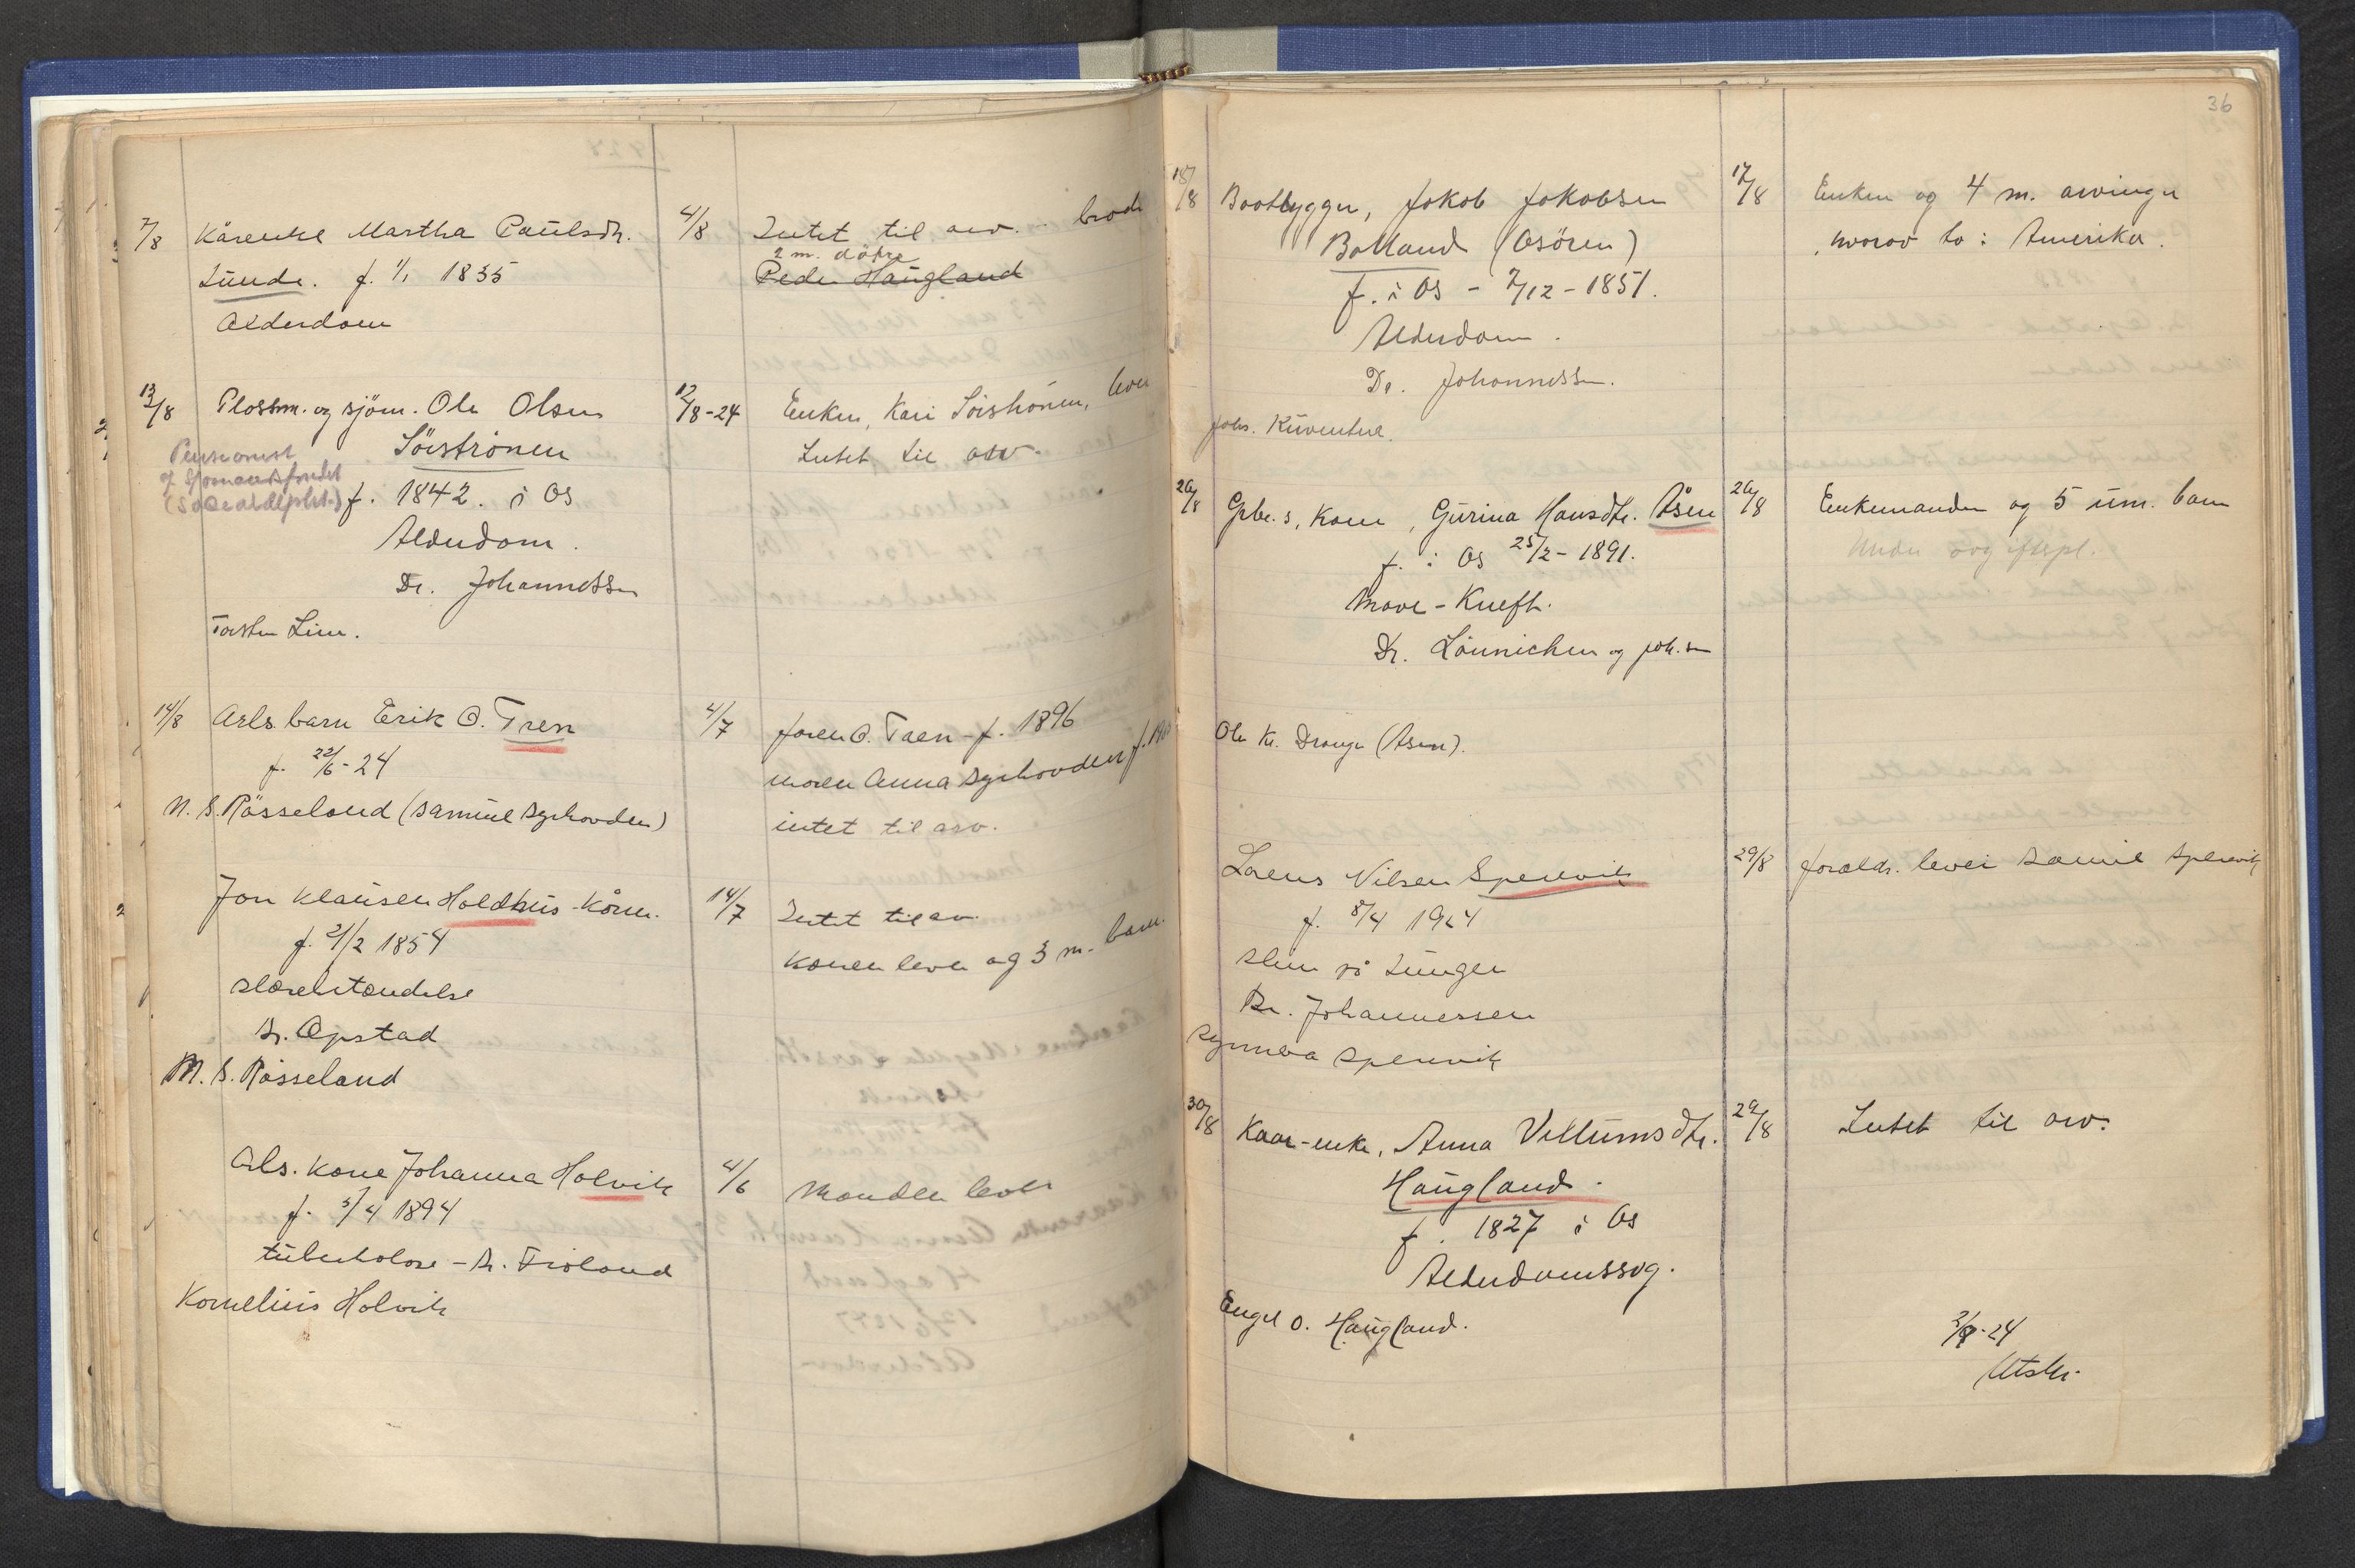 7/8 Kårenke Martha Paulsdtr. 4/8 Intet til arv.
2 m. døtre
Lunde. f. 1/1 1835 Peder Haugland
Alderdom
13/8 Plassm. og sjöm. Ole Olsen 12/8-24 Enken, Kari Söiströnen, lever
Söiströnen Intet til arv.
Pensionist
af Sjömandsfondet
f. 1842. i Os
Alderdom.
Dr. Johannessen
Torsten Lien.
14/8 Arb. barn Erik O. Tren 4/7 faren O. Taen - f. 1896
f. 22/6-24 moren Anna Dyrhovden f.
N. S. Røsseland (Samuel Dyrhovden) intet til arv.
Jon Klausen Holdhus - Kårm. 14/7 Intet til arv.
f. 21/2 1854 Konen lever og 3 m. barn.
Dr. Opstad
M. S. Røsseland
Arb. kone Johanna Holvik 4/6 Manden lever
f. 5/4 1894
tuberkolose - Dr. Trioland
Kornelius Holvik
36
15/8 Baatbygger, Jakob Jakobsen 17/8 Enken og 4 m. arvinger
Bolland (Osören) hvorav to i Amerika.
f. i Os - 7/12 - 1851.
Alderdom.
Dr. Johannessen.
Johs. Kuventræ.
26/8 Grbr. s, Kone, Gurina Hansdtr. Åsen 26/8 Enkemanden og 5 um. barn
f. i Os 25/2 - 1891.
Mave - Kreft.
Dr. Lönnichen og Joh.sen
Ole K. Drange (Åsen).
Laens Nilsen Spenevik 29/8 foreldr. lever Samuel Spenevik
f. 8/4 1924
slim på Lungen
Dr. Johannessen
Synneva Spenevik
30/8 Kaar-enke, Anna Villumsdtr. 29/8 Intet til arv.
Haugland.
f. 1827 i Os
Alderdomssvg.
Engel O. Haugland.
3/9-24
Utskr.